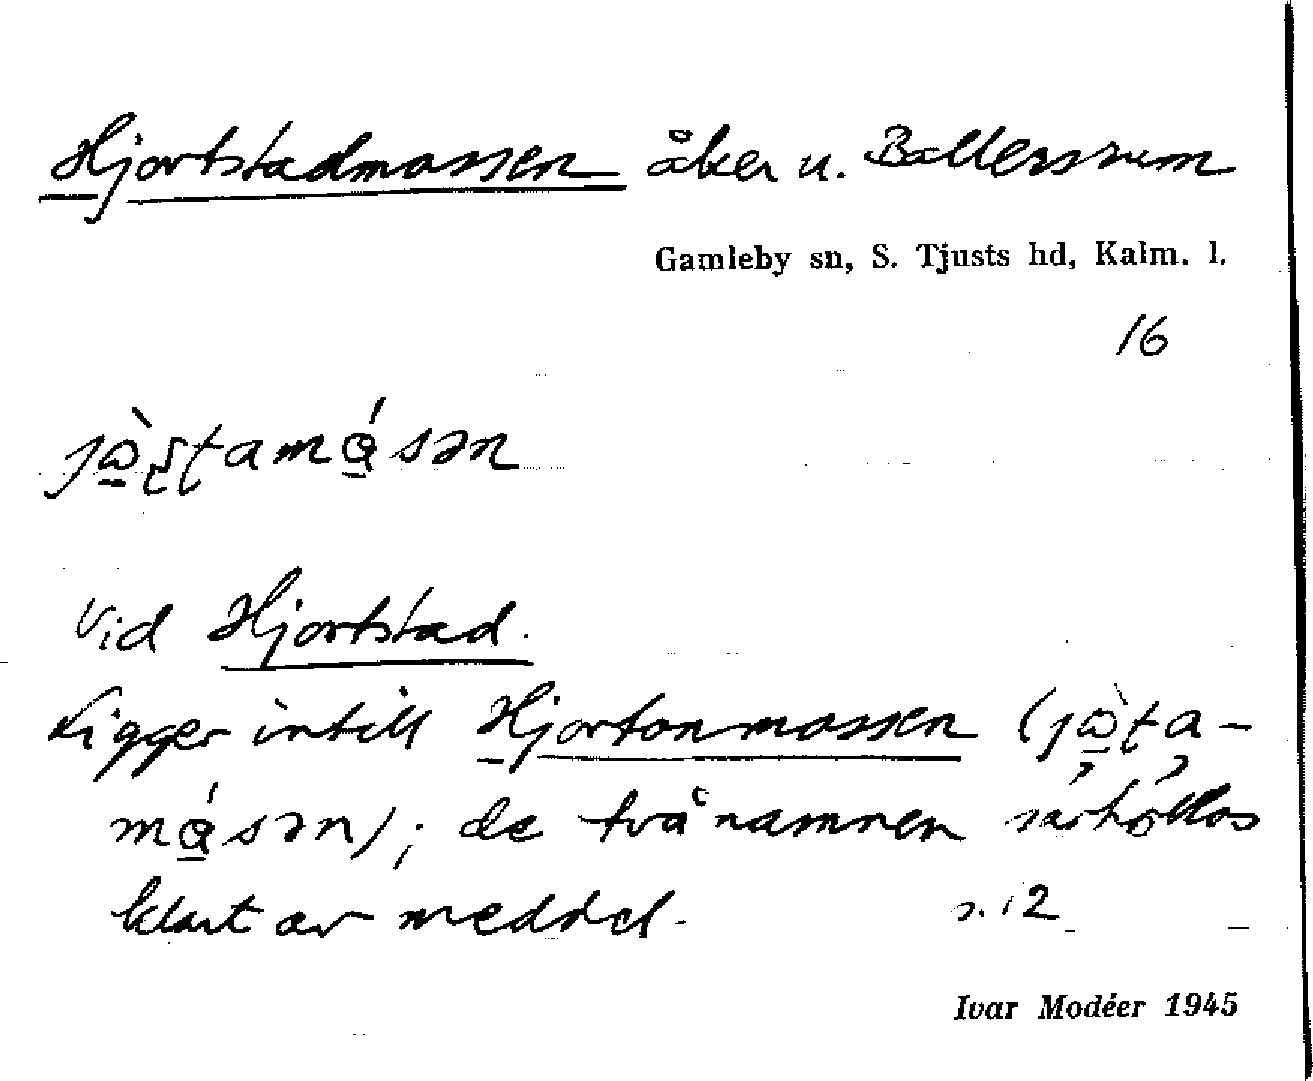 Hjortstadmossen åker u. Ballersrum
Gamleby sn, S. Tjusts hd, Kalm. l.
16
Vid Hjortstad.
Ligger intill Hjortonmossen
de två namnen särhållas
klart av meddel. s. 12
Ivar Modéer 1945